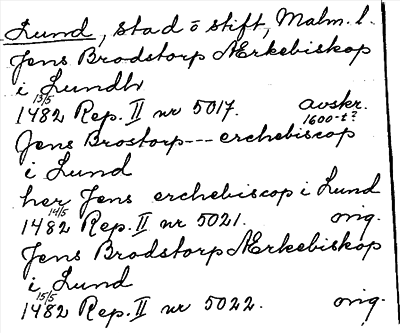 Lund, stad o stift, Malm. l.
Jens Brodstorp Ærkebiskop
i Lundh
13/5
1482 Rep. II nr 5017. avskr.
1600-t?
Jens Brostorp --- erchebiscop
i Lund
her Jens erchebiscop i Lund
14/5
1482 Rep. II nr 5021. orig.
Jens Brodstorp Ærkebiskop
i Lund
15/5
1482 Rep. II nr 5022. orig.